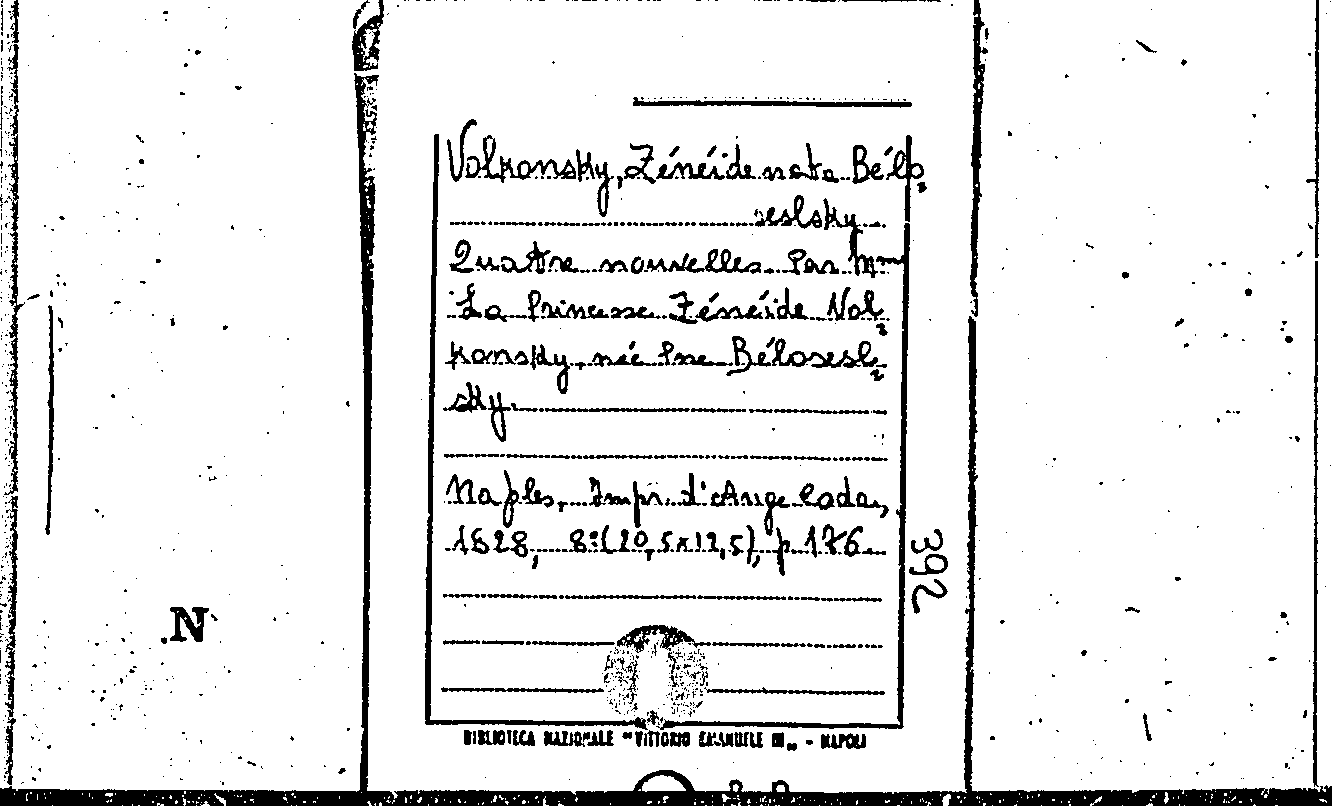 Volkonsky, Zénéide nata Bélo=
seslsky
Quatre nouvelles. Par Mme
La Princesse Zénéide Vol=
konsky, née Pne Bélosesl=
sky.
Naples, Impr. d'Ange Coda,
1828, 8:(20,5x12,5), p 176.
392
N
BIBLIOTECA NAZIONALE "VITTORIO EMANUELE III" - NAPOLI